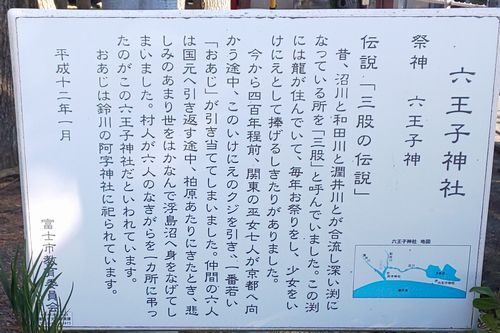 六王子神社
祭神　六王子神
伝説「三股の伝説」
昔、沼川と和田川と潤井川とが合流し深い渕に
なっている所を「三股」と呼んでいました。この渕
には龍が住んでいて、毎年お祭りをし、少女をい
けにえとして捧げるしきたりがありました。
今から四百年程前、関東の巫女七人が京都へ向
かう途中、このいけにえのクジを引き、一番若い
「おあじ」が引き当ててしまいました。仲間の六人
は国元へ引き返す途中、柏原あたりにきたとき、悲
しみのあまり世をはかなんで浮島沼へ身をなげてし
まいました。村人が六人のなきがらを一カ所に弔っ
たのがこの六王子神社だといわれています。
おあじは鈴川の阿字神社に祀られています。
平成十二年一月
富士市教育委員会
六王子神社 地図